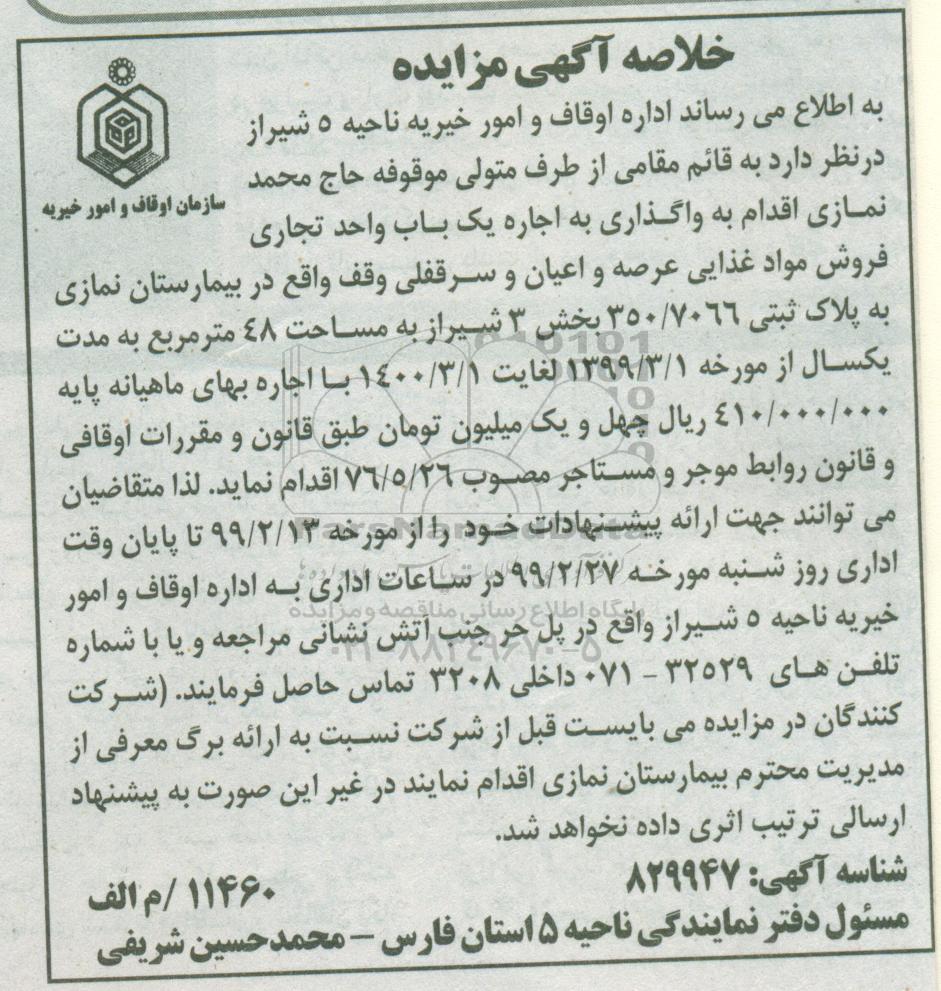 خلاصه آگهی مزایده
سازمان اوقاف و امور خیریه
به اطلاع می رساند اداره اوقاف و امور خیریه ناحیه ٥ شیراز
درنظر دارد به قائم مقامی از طرف متولی موقوفه حاج محمد
نمـازی اقدام به واگـذاری به اجاره یک بـاب واحد تجاری
فروش مواد غذایی عرصه و اعیان و سـرقفلی وقف واقع در بیمارستان نمازی
به پلاک ثبتی ٣٥٠/٧٠٦٦ بخش ٣ شیـراز به مسـاحت ٤٨ مترمربع به مدت
یکسـال از مورخه ١٣٩٩/٣/١ لغایت ١٤٠٠/٣/١ بـا اجاره بهای ماهیانه پایه
٤١٠/٠٠٠/٠٠٠ ریال چهل و یک میلیون تومان طبق قانون و مقررات اوقافی
و قانون روابط موجر و مسـتاجر مصـوب ٧٦/٥/٢٦ اقدام نماید. لذا متقاضیان
می توانند جهت ارائه پیشـنهادات خـود را از مورخه ٩٩/٢/١٣ تا پایان وقت
اداری روز شـنبه مورخـه ٩٩/٢/٢٧ در سـاعات اداری بـه اداره اوقاف و امور
خیریه ناحیه ٥ شـیراز واقع در پل حر جنب آتش نشانی مراجعه و یا با شماره
تلفـن هـای ٣٢٥٢٩ - ٠٧١ داخلی ٣٢٠٨ تماس حاصل فرمایند. (شـرکت
کنندگان در مزایده می بایسـت قبل از شرکت نسـبت به ارائه برگ معرفی از
مدیریت محترم بیمارستان نمازی اقدام نمایند در غیر این صورت به پیشنهاد
ارسالی ترتیب اثری داده نخواهد شد.
شناسه آگهی: ۸۲۹۹۴۷
۱۱۴۶۰ /م الف
مسئول دفتر نمایندگی ناحیه ۵ استان فارس – محمدحسین شریفی
ParsNamadData
پایگاه اطلاع رسانی مناقصه و مزایده
۰۲۱-۸۸۳۴۹۶۷۰-۵